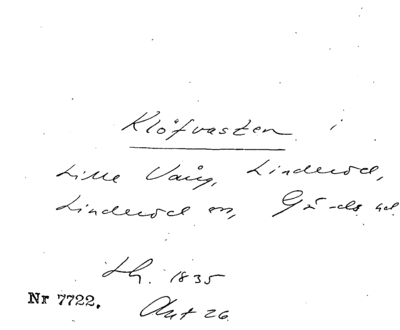 Klöfvasten i
Lille Vång, Linderöd,
Linderöd sn, Gärds hd.
Lh. 1835
Nr 7722. Akt 26